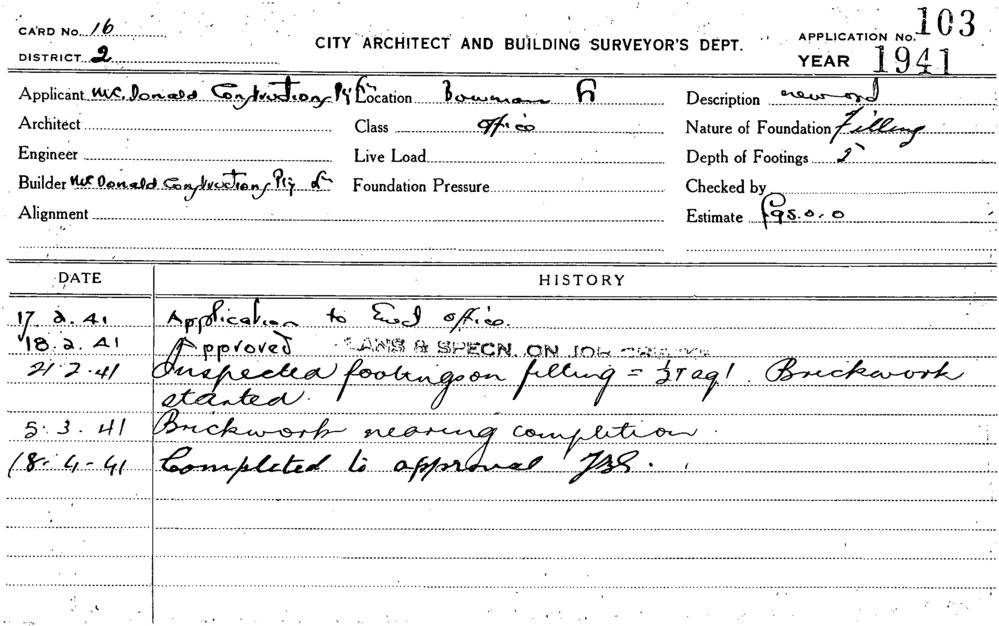 CARD No. 16
DISTRICT 2
CITY ARCHITECT AND BUILDING SURVEYOR'S DEPT.
APPLICATION No. 103
YEAR 1941
Applicant McDonald Constructions Pty Location Bowman Description
Architect Class office Nature of Foundation Filling
Engineer Live Load Depth of Footings 5
Builder McDonald Constructions Pty Foundation Pressure Checked by
Alignment Estimate £95.0.0
DATE HISTORY
17.2.41 Application to office.
18.2.41 Approved PLANS & SPECN. ON JOB
21.2.41 Inspected footings on filling = Brickwork
started.
5.3.41 Brickwork nearing completion.
18-4-41 Completed to approval